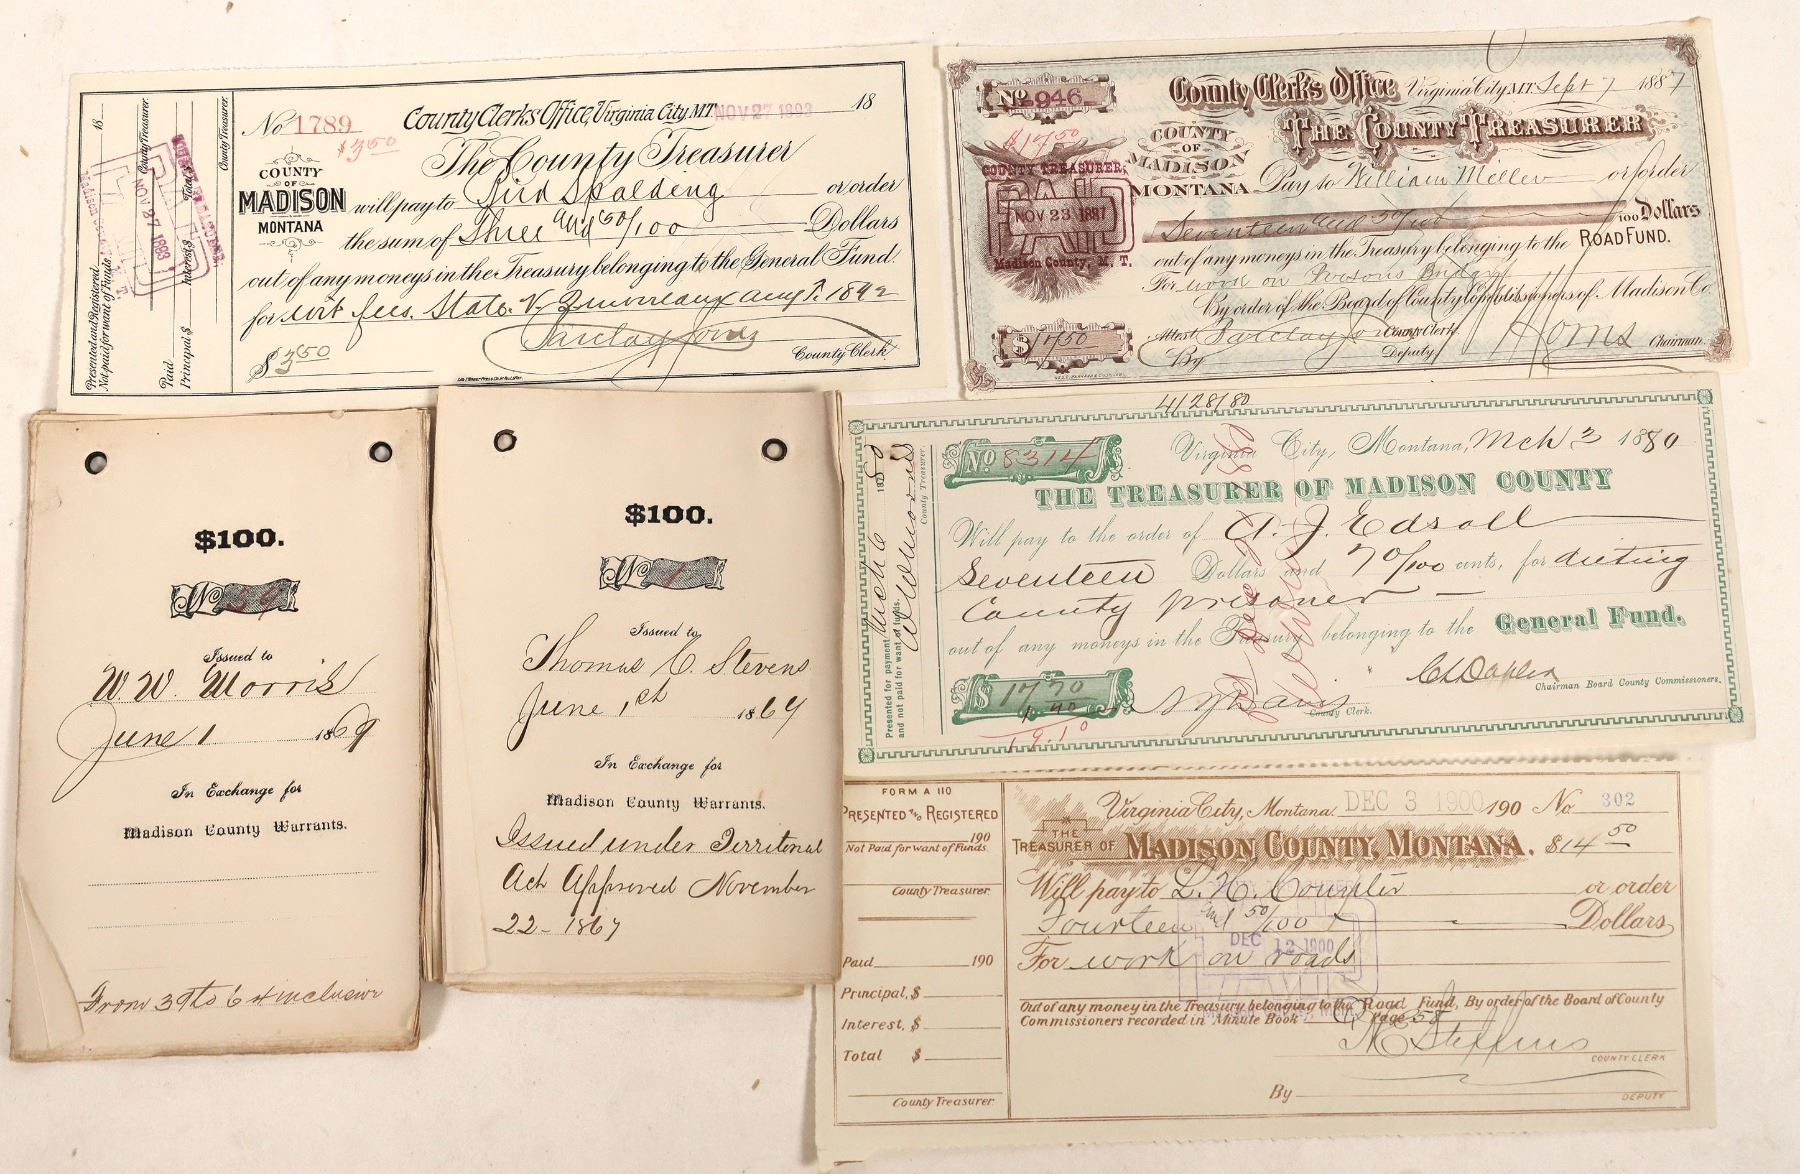 No 1789
$3.50
County Clerks Office, Virginia City MT. NOV 27 1893 18
The County Treasurer
COUNTY
OF
MADISON
MONTANA
will pay to Bird Spalding or order
the sum of Three and 50/100 Dollars
out of any moneys in the Treasury belonging to the General Fund.
for wit fees. State v. 1892
$3.50
Barclay Jones
County Clerk
18
Presented and Registered
Not paid for want of Funds.
County Treasurer.
Paid
Principal $
Interest $
Total $
County Treasurer.
No 946
$17.50
County Clerk's Office Virginia City M.T. Sept 7 1887
THE COUNTY TREASURER
COUNTY
OF
MADISON
MONTANA
Pay to William Miller or order
Seventeen and 50/100 Dollars
out of any moneys in the Treasury belonging to the ROAD FUND.
For work on Parsons Bridge
By order of the Board of County Commissioners of Madison Co.
Attest Barclay Jones County Clerk.
By Deputy
Chairman
$17.50
COUNTY TREASURER,
PAID
NOV 23 1887
Madison County, M. T.
$100.
No 39
Issued to
W. W. Morris
June 1 1869
In Exchange for
Madison County Warrants.
From 39 to 64 inclusive
$100.
No 1
Issued to
Thomas C. Stevens
June 1st 1869
In Exchange for
Madison County Warrants.
Issued under Territorial
Act Approved November
22- 1867
4/28/80
No 8314
Virginia City, Montana, Mch 3 1880
THE TREASURER OF MADISON COUNTY
Will pay to the order of A. J. Edsall
Seventeen Dollars and 70/100 cents, for dieting
County prisoner
out of any moneys in the Treasury belonging to the General Fund.
$17 70
1 40
19.10
County Clerk.
Chairman Board County Commissioners.
Presented for payment March 6 1880
and not paid for want of funds.
County Treasurer
FORM A 110
PRESENTED AND REGISTERED
190
Not Paid for want of Funds.
County Treasurer.
Paid 190
Principal, $
Interest, $
Total $
County Treasurer.
Virginia City, Montana. DEC 3 1900 190 No. 302
THE
TREASURER OF MADISON COUNTY, MONTANA. $14 50
Will pay to L. H. Coumpter or order
Fourteen and 50/100 Dollars
For work on roads
DEC 12 1900
PAID
Out of any money in the Treasury belonging to the Road Fund, By order of the Board of County
Commissioners recorded in Minute Book Page 58
COUNTY CLERK
By
DEPUTY